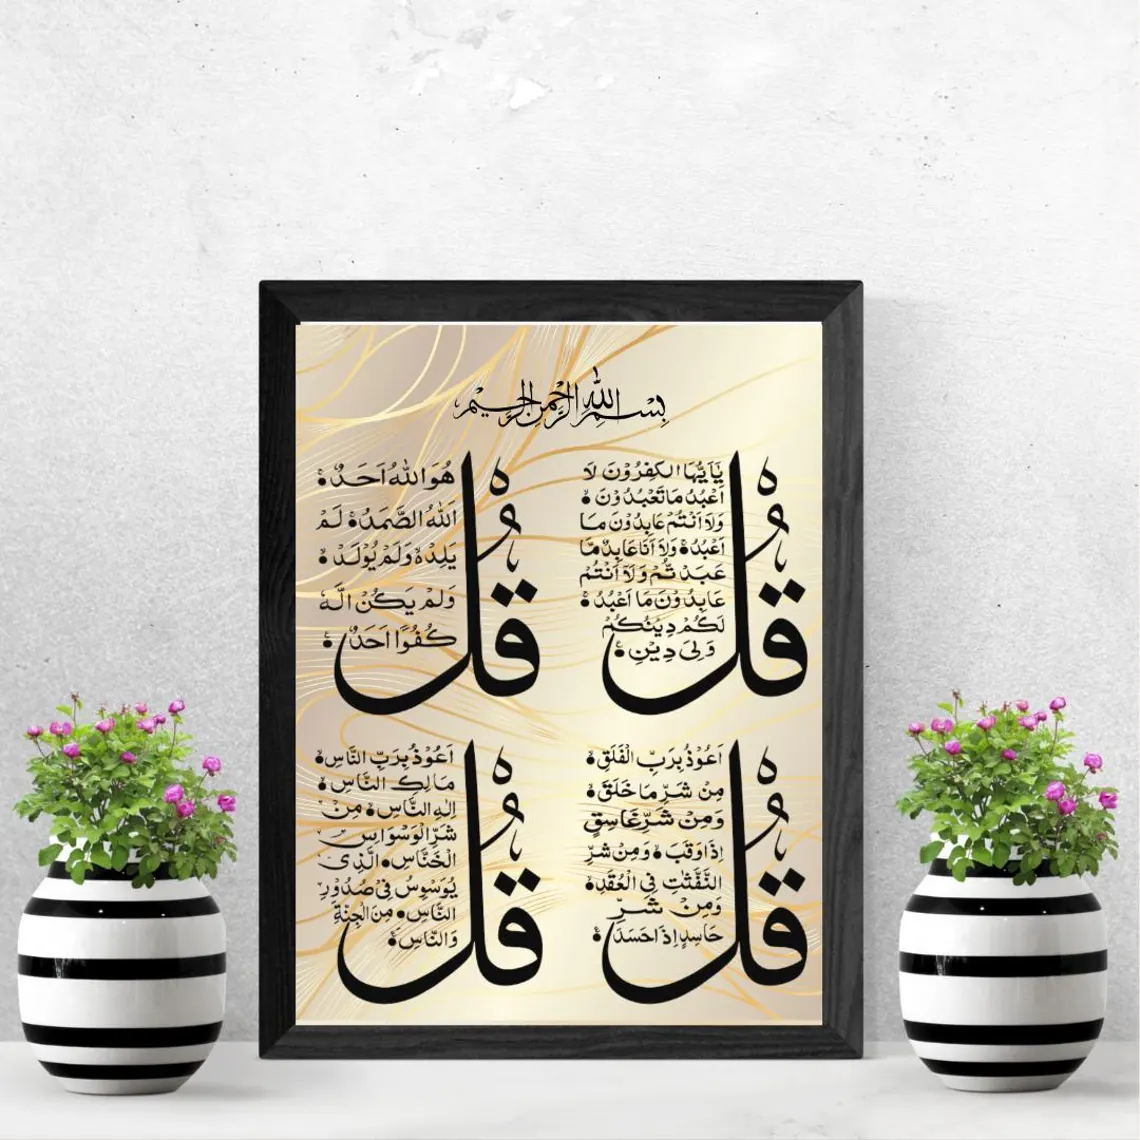 بِسْمِ اللهِ الرَّحْمٰنِ الرَّحِيْمِ
قُلْ
يٰٓاَيُّهَا الْكٰفِرُوْنَ لَا
اَعْبُدُ مَا تَعْبُدُوْنَ ۰
وَلَا اَنْتُمْ عَابِدُوْنَ مَا
اَعْبُدُ ۰ وَلَا اَنَا عَابِدٌ مَّا
عَبَدْ تُّمْ وَلَآ اَنْتُمْ
عَابِدُوْنَ مَا اَعْبُدُ ۰
لَكُمْ دِيْنُكُمْ
وَلِىَ دِيْنِ ۰
قُلْ
هُوَ اللهُ اَحَدٌ ۰
اَللهُ الصَّمَدُ ۰ لَمْ
يَلِدْ ۰ وَلَمْ يُوْلَدْ ۰
وَلَمْ يَكُنْ الَّهٗ
كُفُوًا اَحَدٌ ۰
قُلْ
اَعُوْذُ بِرَبِّ الْفَلَقِ ۰
مِنْ شَرِّ مَا خَلَقَ ۰
وَمِنْ شَرِّ غَاسِقٍ
اِذَا وَقَبَ ۰ وَمِنْ شَرِّ
النَّفّٰثٰتِ فِى الْعُقَدِ ۰
وَمِنْ شَرِّ
حَاسِدٍ اِذَا حَسَدَ ۰
قُلْ
اَعُوْذُ بِرَبِّ النَّاسِ ۰
مَالِكِ النَّاسِ ۰
اِلٰهِ النَّاسِ ۰ مِنْ
شَرِّ الْوَسْوَاسِ
الْخَنَّاسِ ۰ الَّذِىْ
يُوَسْوِسُ فِىْ صُدُوْرِ
النَّاسِ ۰ مِنَ الْجِنَّةِ
وَالنَّاسِ ۰